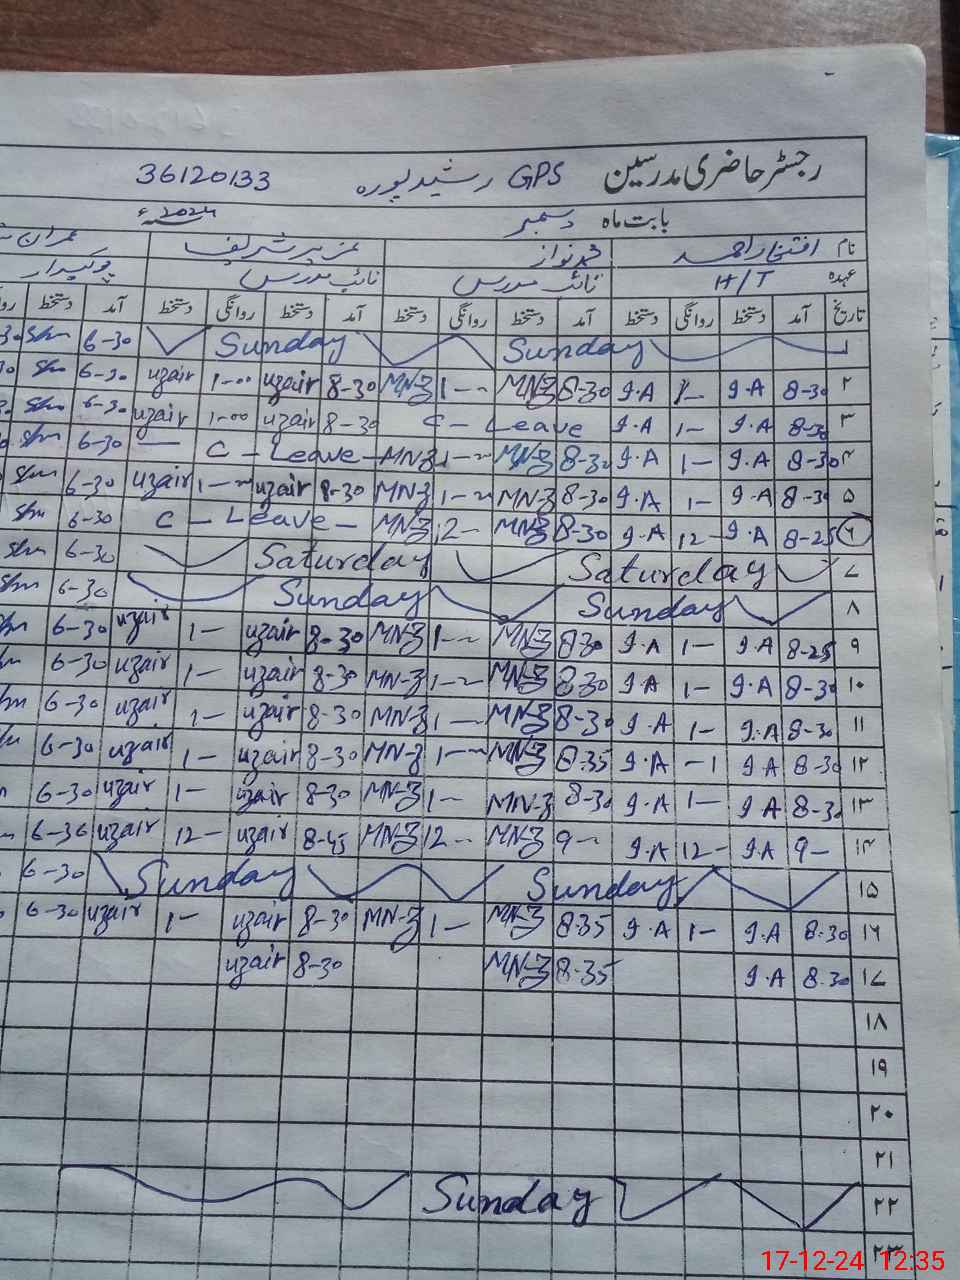 رجسٹر حاضری مدرسین GPS رشید پورہ 36120133
بابت ماہ دسمبر 2024ء
نام افتخار احمد محمد نواز عزیر شریف عمران
عہدہ H/T نائب مدرس نائب مدرس چوکیدار
تاریخ آمد دستخط روانگی دستخط آمد دستخط روانگی دستخط آمد دستخط روانگی دستخط آمد دستخط
۱ Sunday Sunday 6-30 Shm
۲ 8-30 I.A 1- I.A 8-30 MN-Z 1-- MN-Z 8-30 uzair 1-00 uzair 6-30 Shm
۳ 8-30 I.A 1- I.A C-Leave 8-30 uzair 1-00 uzair 6-30 Shm
۴ 8-30 I.A 1- I.A 8-30 MN-Z 1-- MN-Z C-Leave- 6-30 Shm
۵ 8-30 I.A 1- I.A 8-30 MN-Z 1-- MN-Z 8-30 uzair 1-- uzair 6-30 Shm
۶ 8-25 I.A 12- I.A 8-30 MN-Z 12- MN-Z C-Leave- 6-30 Shm
۷ Saturday Saturday 6-30 Shm
۸ Sunday Sunday 6-30 Shm
۹ 8-25 I.A 1- I.A 8-30 MN-Z 1-- MN-Z 8-30 uzair 1- uzair 6-30
۱۰ 8-30 I.A 1- I.A 8-30 MN-Z 1-- MN-Z 8-30 uzair 1- uzair 6-30
۱۱ 8-30 I.A 1- I.A 8-30 MN-Z 1-- MN-Z 8-30 uzair 1- uzair 6-30
۱۲ 8-30 I.A -1 I.A 8-35 MN-Z 1-- MN-Z 8-30 uzair 1- uzair 6-30
۱۳ 8-30 I.A 1- I.A 8-30 MN-Z 1-- MN-Z 8-30 uzair 1- uzair 6-30
۱۴ 9- I.A 12- I.A 9-- MN-Z 12-- MN-Z 8-45 uzair 12- uzair 6-30
۱۵ Sunday Sunday 6-30
۱۶ 8-30 I.A 1- I.A 8-35 MN-Z 1- MN-Z 8-30 uzair 1- uzair 6-30
۱۷ 8-30 I.A 8-35 MN-Z 8-30 uzair
۱۸
۱۹
۲۰
۲۱
۲۲ Sunday
۲۳
17-12-24 12:35